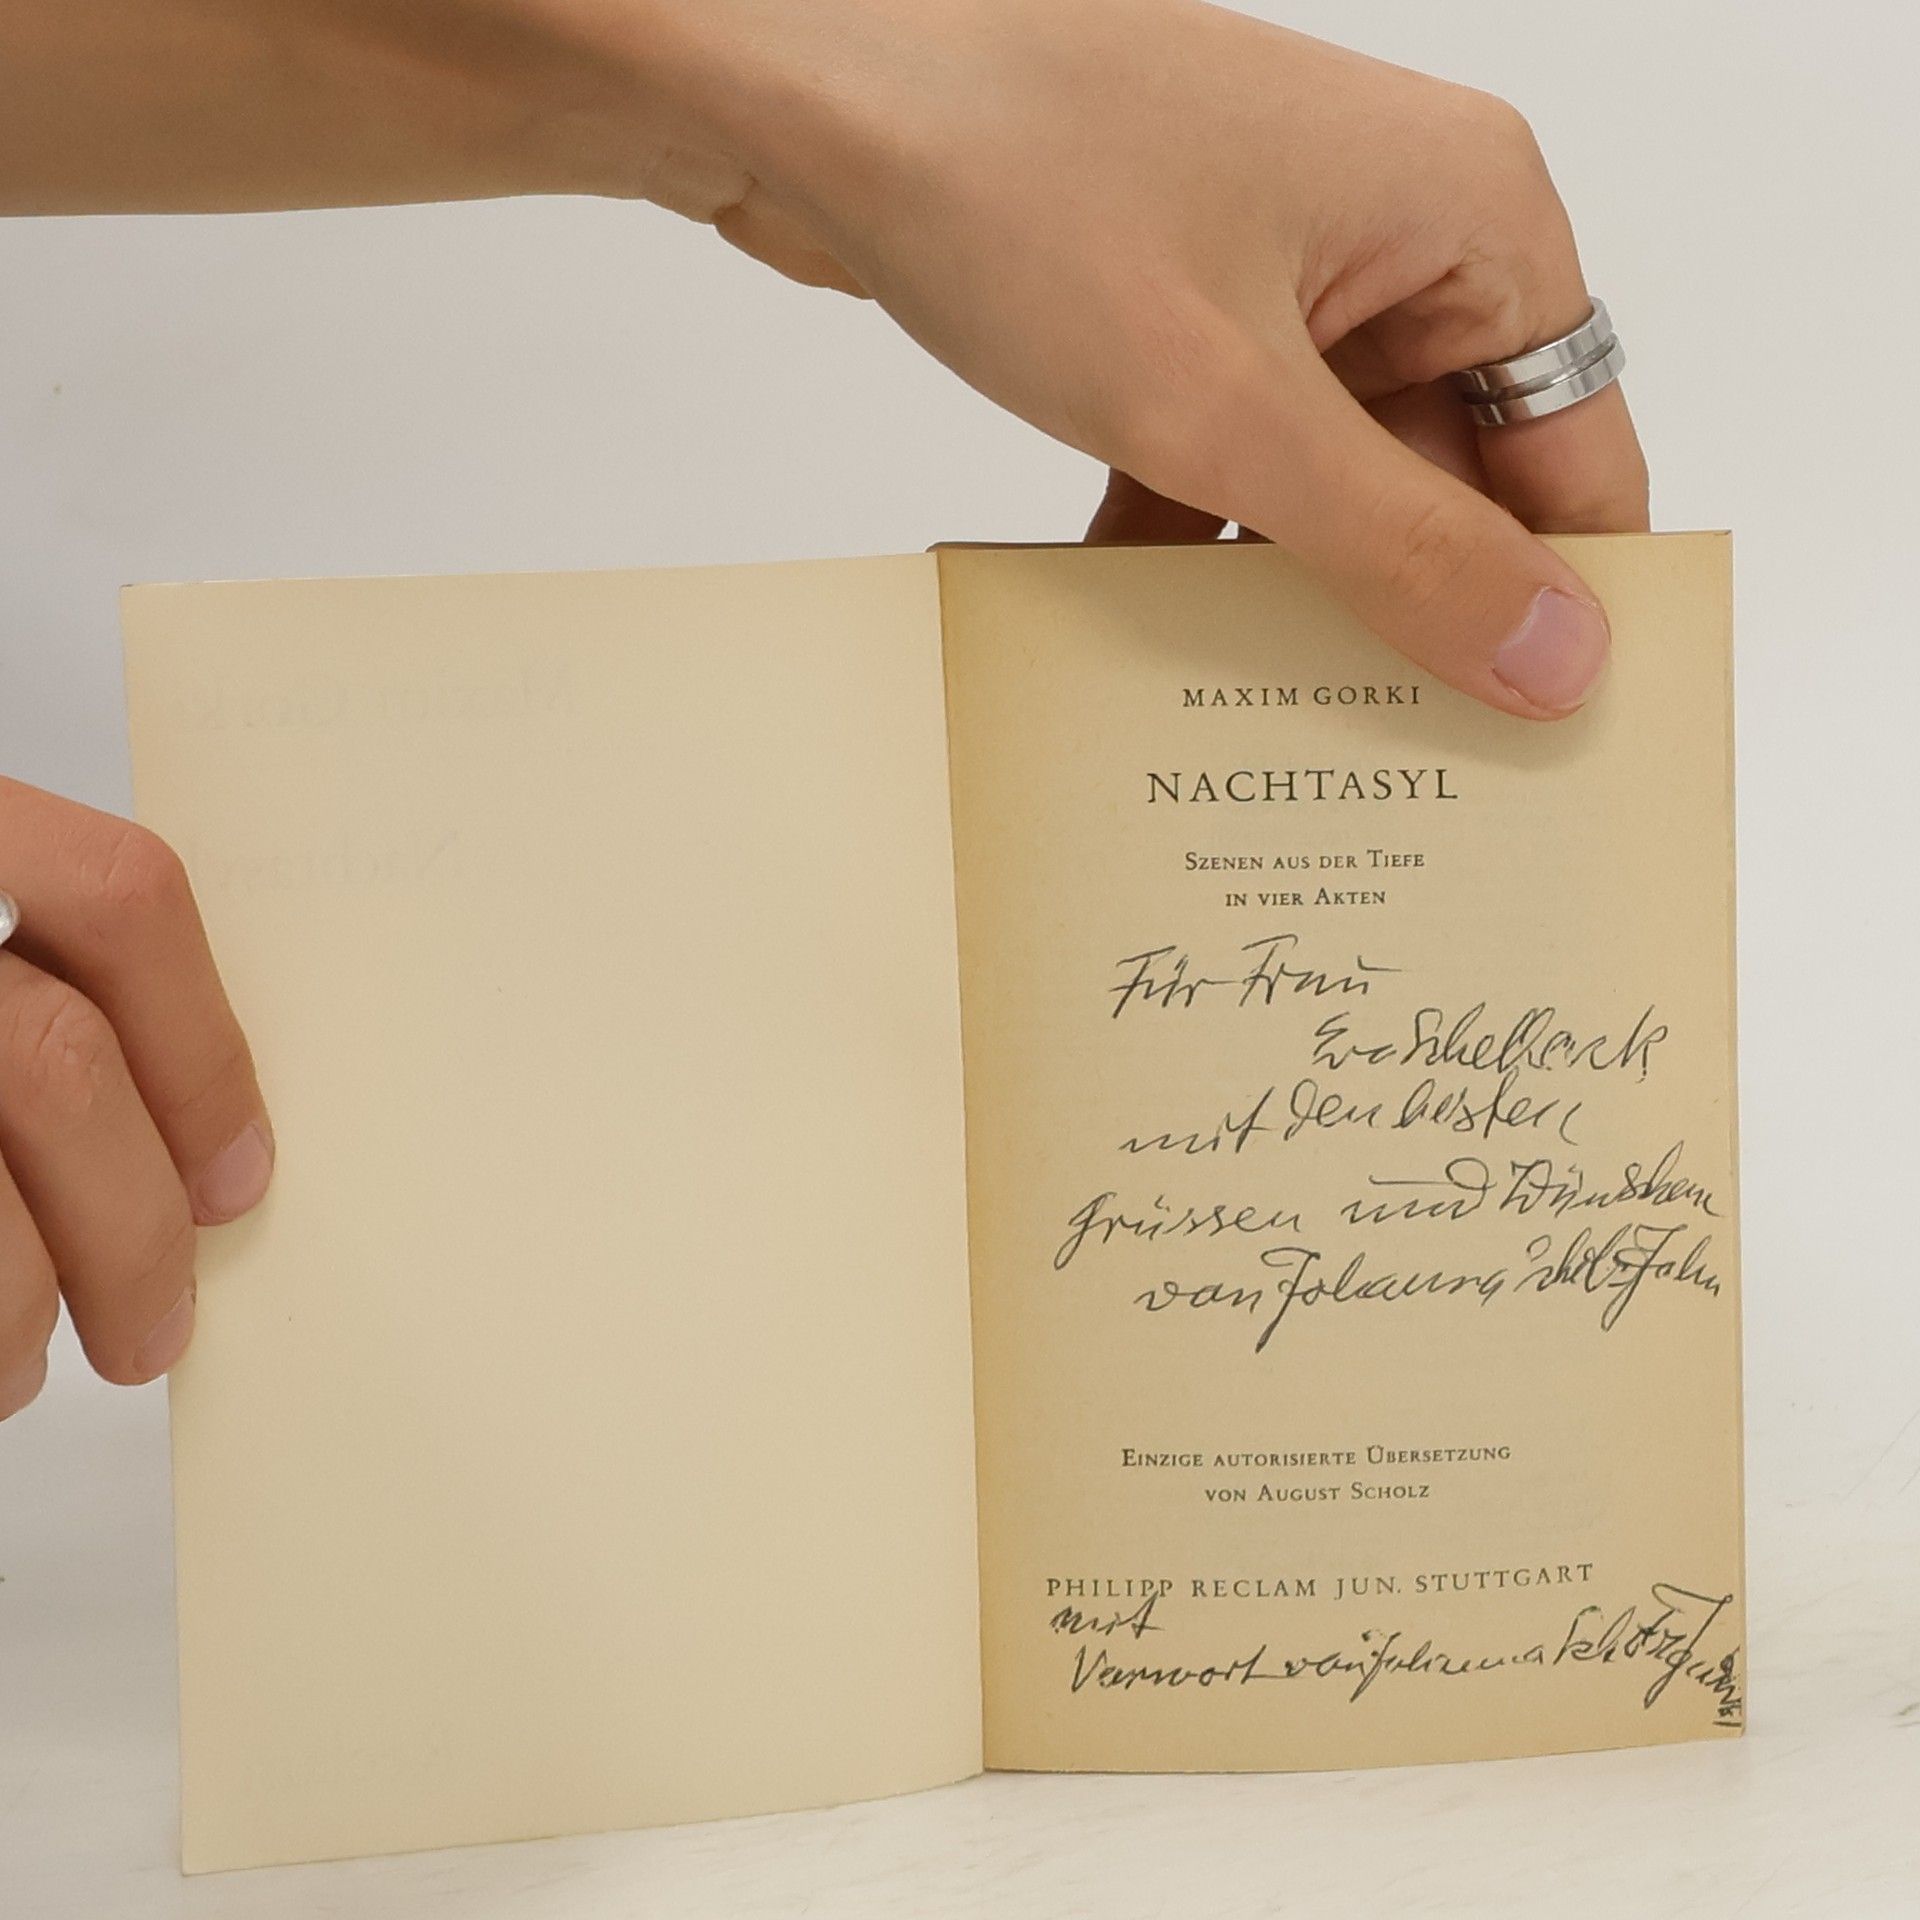 MAXIM GORKI
NACHTASYL
SZENEN AUS DER TIEFE
IN VIER AKTEN
Für Frau
Eva
mit den besten
Grüssen und Wünschen
von Johanna
EINZIGE AUTORISIERTE ÜBERSETZUNG
VON AUGUST SCHOLZ
PHILIPP RECLAM JUN. STUTTGART
mit
Vorwort von Johanna